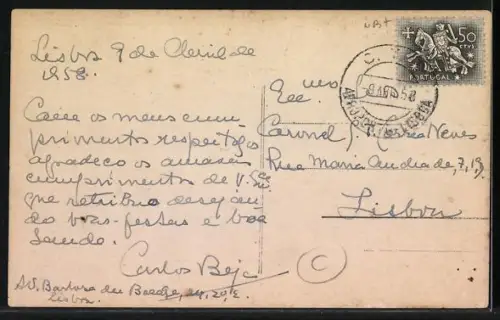 Lisboa 9 de Abril de
1958.
Com os meus cum
primentos respeitosos
agradeço os amáveis
cumprimentos de V. Ex.
que retribuo desejan
do boas-festas e boa
saúde.
Carlos Beja
Av. Barbosa du Bocage,
Lisboa.
Ex.mo
Neves
Rua Maria Andrade, 7, 1º
Lisboa
C
50
CTVS
PORTUGAL